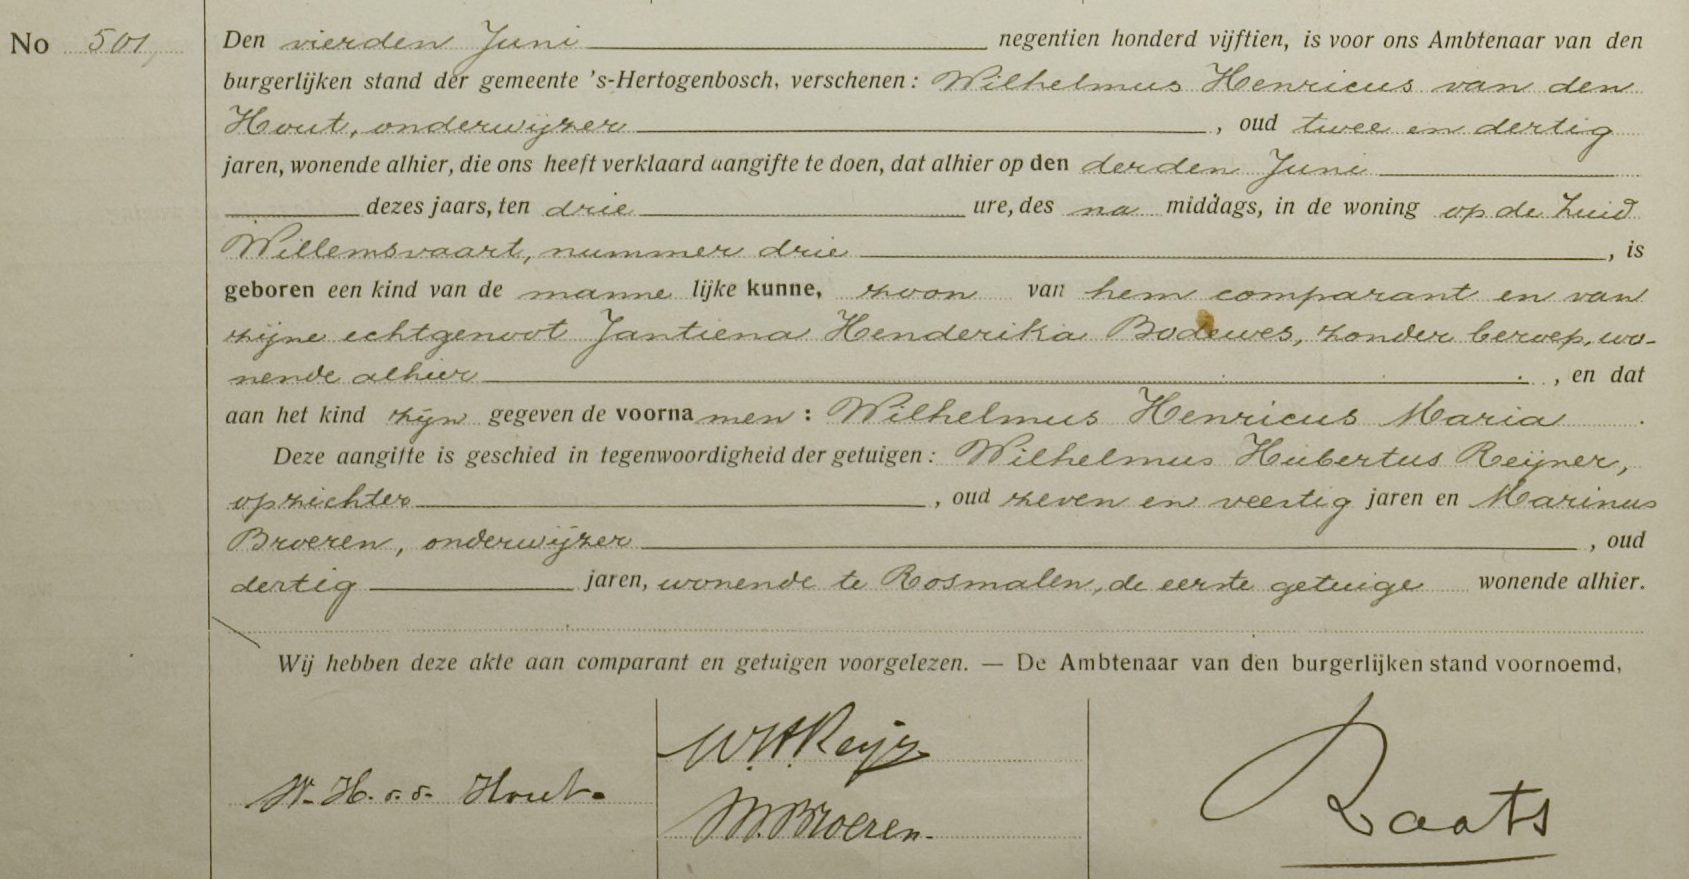 No 501, Den vierden Juni negentien honderd vijftien, is voor ons Ambtenaar van den
burgerlijken stand der gemeente 's-Hertogenbosch, verschenen: Wilhelmus Henricus van den
Hout, onderwijzer, oud twee en dertig
jaren, wonende alhier, die ons heeft verklaard aangifte te doen, dat alhier op den derden Juni
dezes jaars, ten drie ure, des na middags, in de woning op de Zuid
Willemsvaart, nummer drie, is
geboren een kind van de manne lijke kunne, zoon van hem comparant en van
zijne echtgenoot Jantiena Henderika Bodewes, zonder beroep, wo-
nende alhier, en dat
aan het kind zijn gegeven de voorna men: Wilhelmus Henricus Maria.
Deze aangifte is geschied in tegenwoordigheid der getuigen: Wilhelmus Hubertus Reijner,
opzichter, oud zeven en veertig jaren en Marinus
Broeren, onderwijzer, oud
dertig jaren, wonende te Rosmalen, de eerste getuige wonende alhier.
Wij hebben deze akte aan comparant en getuigen voorgelezen. — De Ambtenaar van den burgerlijken stand voornoemd,
W. H. v. d. Hout.
M. Broeren.
Raats